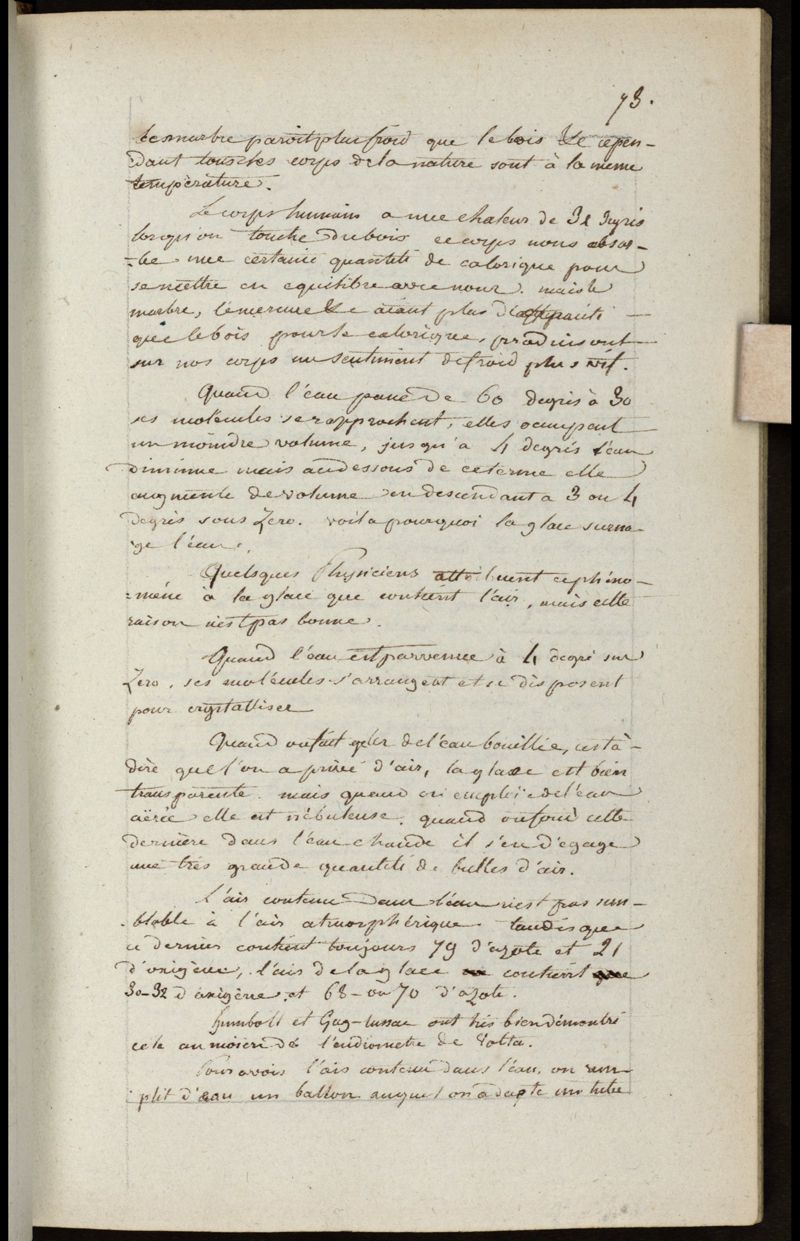 73.
le marbre paroit plus froid que le bois &c cepen-
dant tous les corps de la nature sont à la meme
température.
Le corps humain a une chaleur de 32 degrés
lorsqu'on touche du bois ce corps nous absor-
-be une certaine quantité de calorique pour
se mettre en equilibre avec nous. mais le
marbre, le mercure &c aiant plus de capacité
que le bois pour le calorique, produisent
sur nos corps un sentiment de froid plus vif.
Quand l'eau passe de 60 degrés à 30
ses molécules se rapprochent, elles occupent
un moindre volume, jusqu'a 4 degrés l'eau
diminue mais au dessous de ce terme elle
augmente de volume en descendant a 3 ou 4
degrés sous Zero. voila pourquoi la glace surna-
ge l'eau.
Quelques Physiciens attribuent ce phéno-
-méne à la glace que contient l'air, mais cette
raison n'est pas bonne.
Quand l'eau est parvenue à 4 degré sur
Zero, ses molécules s'arrangent et se disposent
pour crystalliser
Quand on fait geler de l'eau bouillie, c'est à-
dire que l'on a privé d'air, la glace est bien
transparente. mais quand on emploïe de l'eau
aërée elle est nébuleuse. quand on fond cette
dernière dans l'eau chaude il s'en dégage
une très grande quantité de bulles d'air.
L'air contenu dans l'eau n'est pas sem-
-blable à l'air atmosphérique. tandis que
ce dernier contient toujours 79 d'azote et 21
d'oxigène, l'air de la glace contient
30-32 d'oxigène et 68-ou 70 d'azote.
Humbolt et Gay-lussac ont très bien démontré
cela au moien de l'eudiometre de Volta.
Pour avoir l'air contenu dans l'eau, on rem-
plit d'eau un ballon auquel on adapte un tube